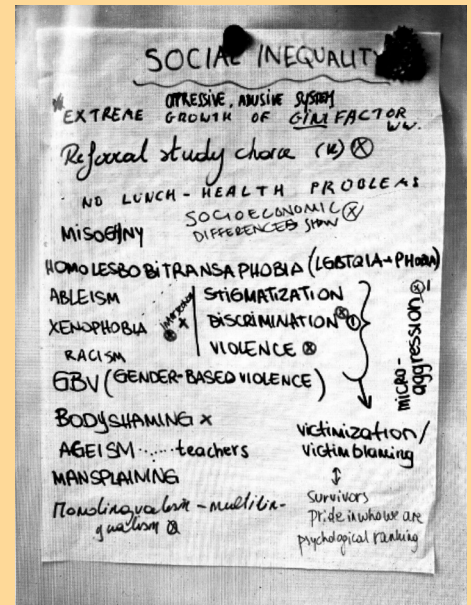 SOCIAL INEQUALITY
OPRESSIVE, ABUSIVE SYSTEM
EXTREME GROWTH OF GINI FACTOR
WW.
Referral study choice (k) ⓧ
NO LUNCH - HEALTH PROBLEMS
SOCIOECONOMIC ⓧ
DIFFERENCES SHOW
MISOGYNY
HOMOLESBOBITRANSAPHOBIA (LGBTQIA+ PHOBIA)
ABLEISM
XENOPHOBIA
RACISM
STIGMATIZATION
DISCRIMINATION ⓧ
VIOLENCE ⓧ
GBV (GENDER-BASED VIOLENCE)
micro-
aggression ⓧ
BODYSHAMING x
AGEISM ...... teachers
MANSPLAINING
Monolingualism - multilin-
gualism ⓧ
victimization/
victimblaming
↕
survivors
Pride in who we are
psychological ranking